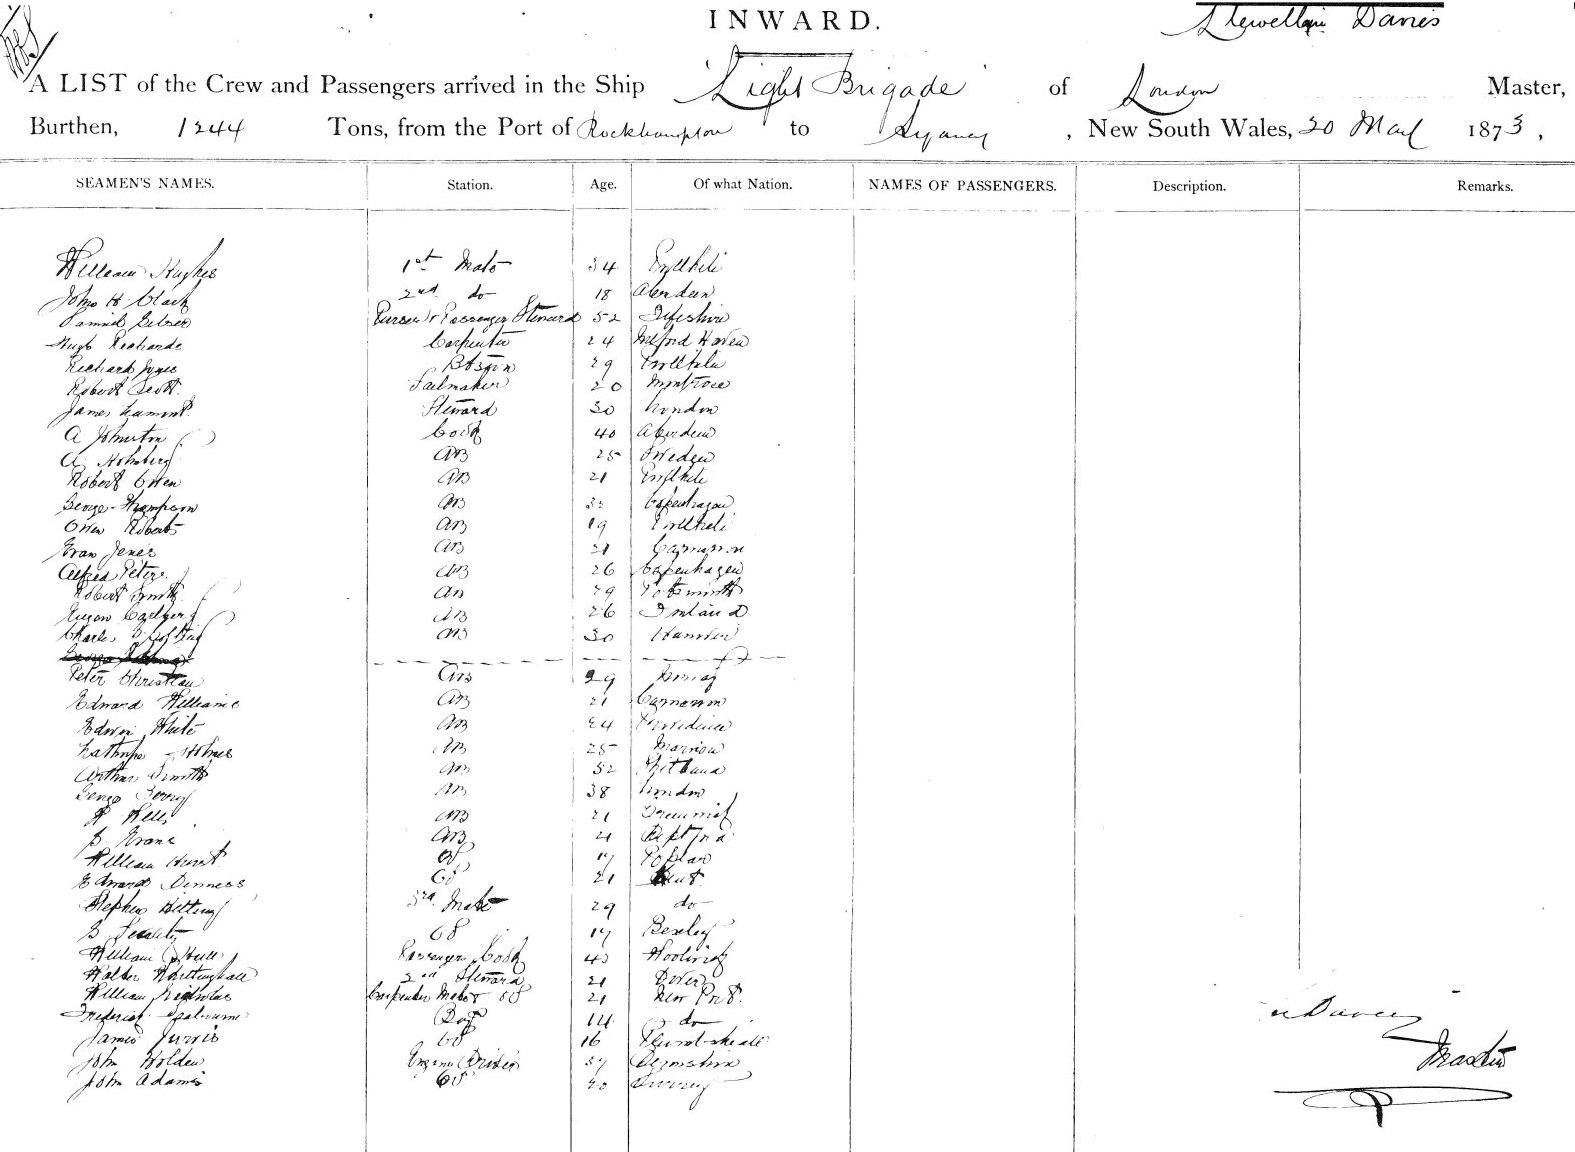 INWARD.
Llewellyn Davies
A LIST of the Crew and Passengers arrived in the Ship "Light Brigade" of London Master,
Burthen, 1244 Tons, from the Port of Rockhampton to Sydney, New South Wales, 20 May 1873,
SEAMEN'S NAMES. Station. Age. Of what Nation. NAMES OF PASSENGERS. Description. Remarks.
William Hughes 1st Mate 34 Pwllheli
John H Clark 2nd do 18 Aberdeen
Samuel Purser & Passenger Steward 52 Fifeshire
Hugh Richards Carpenter 24 Milford Haven
Richard Jones Bosun 29 Pwllheli
Robert Scott Sailmaker 20 Montrose
James Lamont Steward 30 London
A Johnston Cook 40 Aberdeen
A. AB 25 Sweden
Robert Owen AB 21 Pwllheli
George Thompson AB Copenhagen
Owen Roberts AB 19 Pwllheli
Evan Jones AB 21 Carnarvon
Alfred Peters AB 26 Copenhagen
Robert Smith AB 29 Portsmouth
AB 26 Finland
Charles AB 30 Hanover
George
Peter Christian AB 29
Edward Williams AB 21 Carnarvon
Edwin White AB 24 Providence
Holmes AB 25
Arthur Smith AB 52
George AB 38 London
H Wells AB 21
E Evans AB 21 Deptford
William Hurst OS 17 Poplar
Edward Denness OS 21 Kent
Stephen 3rd Mate 29 do
G OS 17 Bexley
William Hull Passenger Cook 43 Woolwich
Walter Whittinghall 2nd Steward 21 Dover
William Nicholas Carpenter Mate & OS 21 New Port
Frederick Boy 14 do
James Jarvis OS 16
John Holden Engine Driver 37 Devonshire
John Adams OS 40 Surrey
Davies
Master